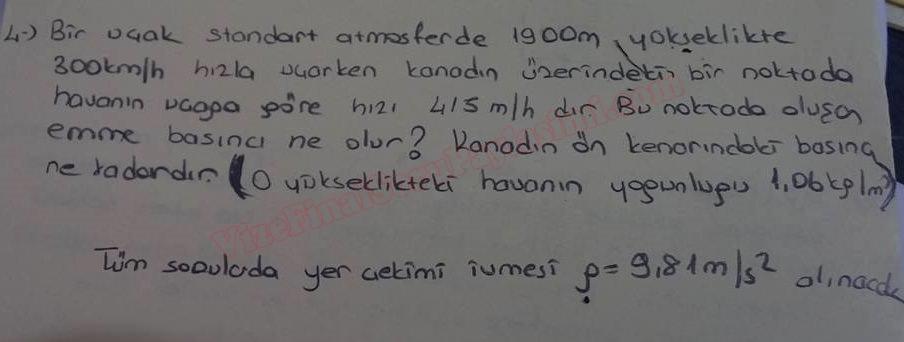 4-) Bir uçak standart atmosferde 1900m yükseklikte
300km/h hızla uçarken kanadın üzerindeki bir noktada
havanın uçağa göre hızı 415 m/h dır. Bu noktada oluşan
emme basıncı ne olur? Kanadın ön kenarındaki basınç
ne kadardır. (O yükseklikteki havanın yoğunluğu 1,06kg/m³)
Tüm sorularda yer çekimi ivmesi g=9,81m/s² alınacak